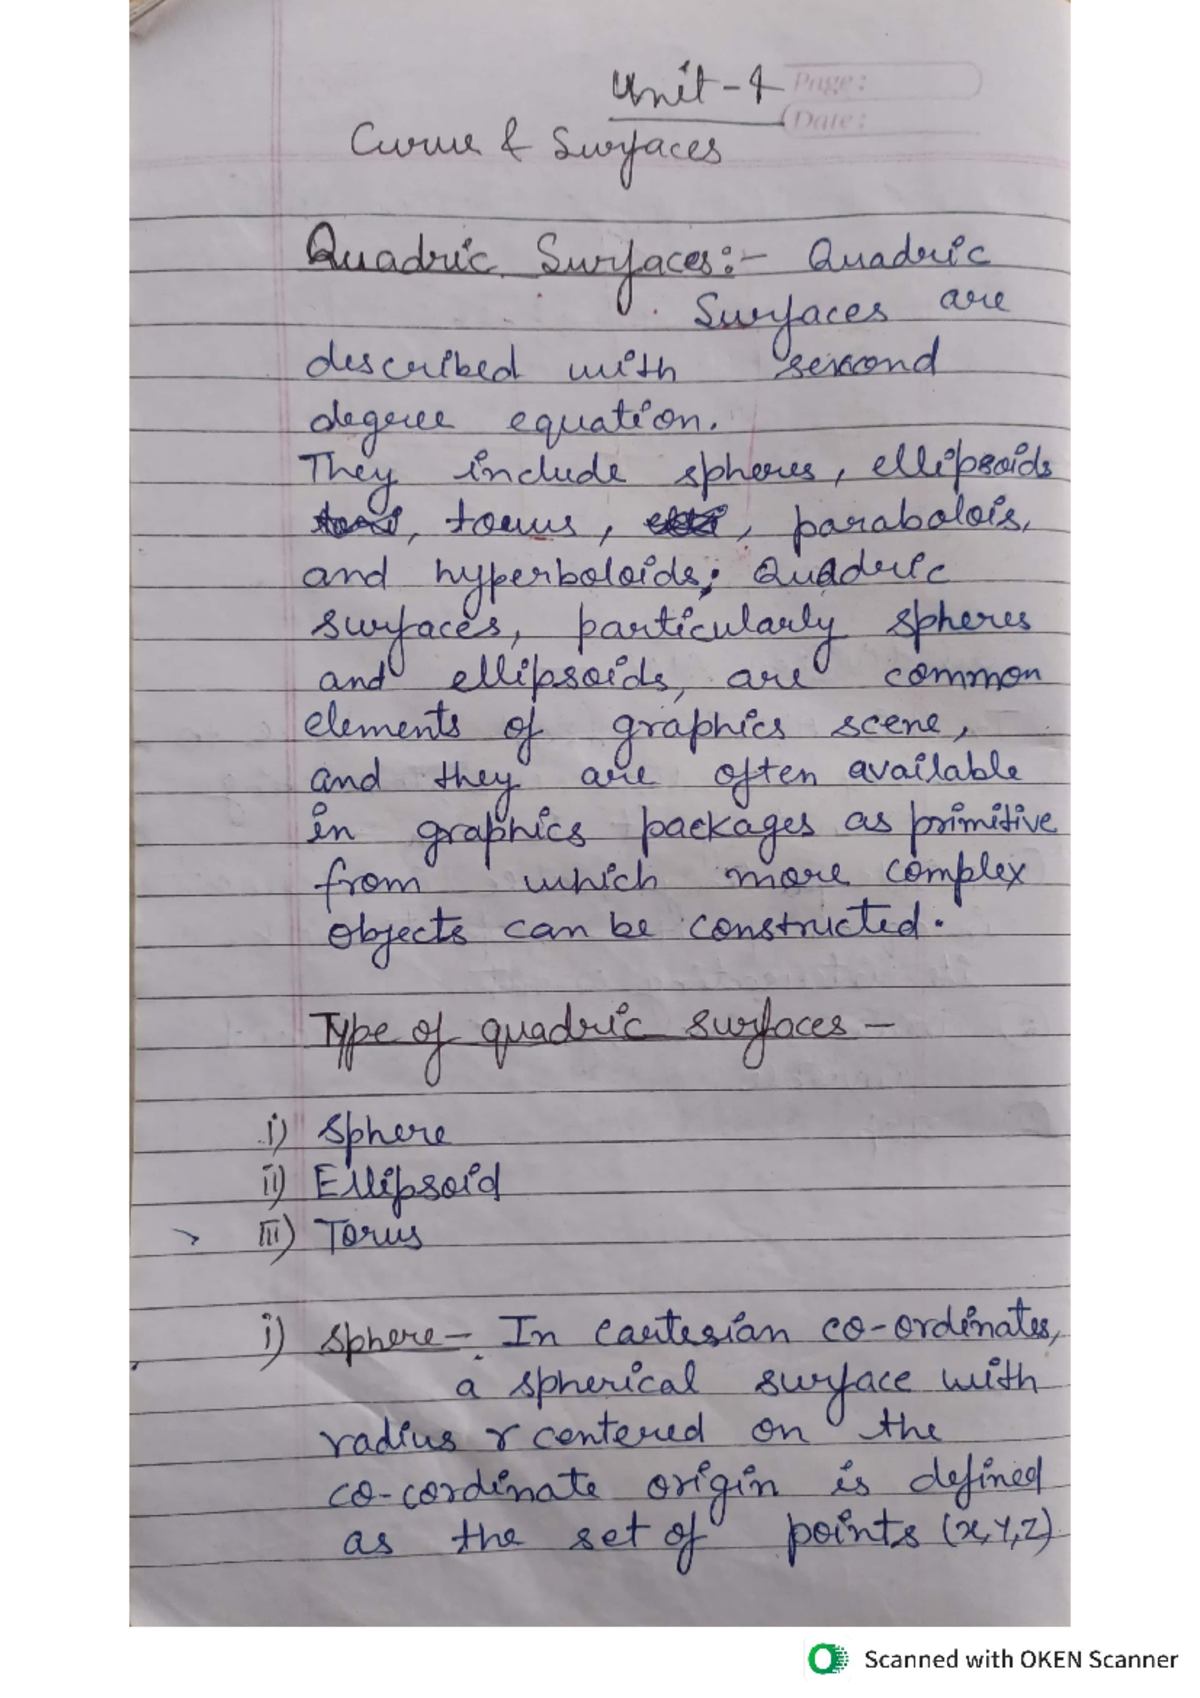 Unit-4
Page:
Date:
Curve & Surfaces
Quadric Surfaces:- Quadric
Surfaces are
described with second
degree equation.
They include spheres, ellipsoids
, torus, , parabolois,
and hyperboloids; Quadric
surfaces, particularly spheres
and ellipsoids, are common
elements of graphics scene,
and they are often available
in graphics packages as primitive
from which more complex
objects can be constructed.
Type of quadric surfaces -
i) Sphere
ii) Ellipsoid
iii) Torus
i) Sphere - In cartesian co-ordinates,
a spherical surface with
radius r centered on the
co-cordinate origin is defined
as the set of points (x,Y,Z)
Scanned with OKEN Scanner